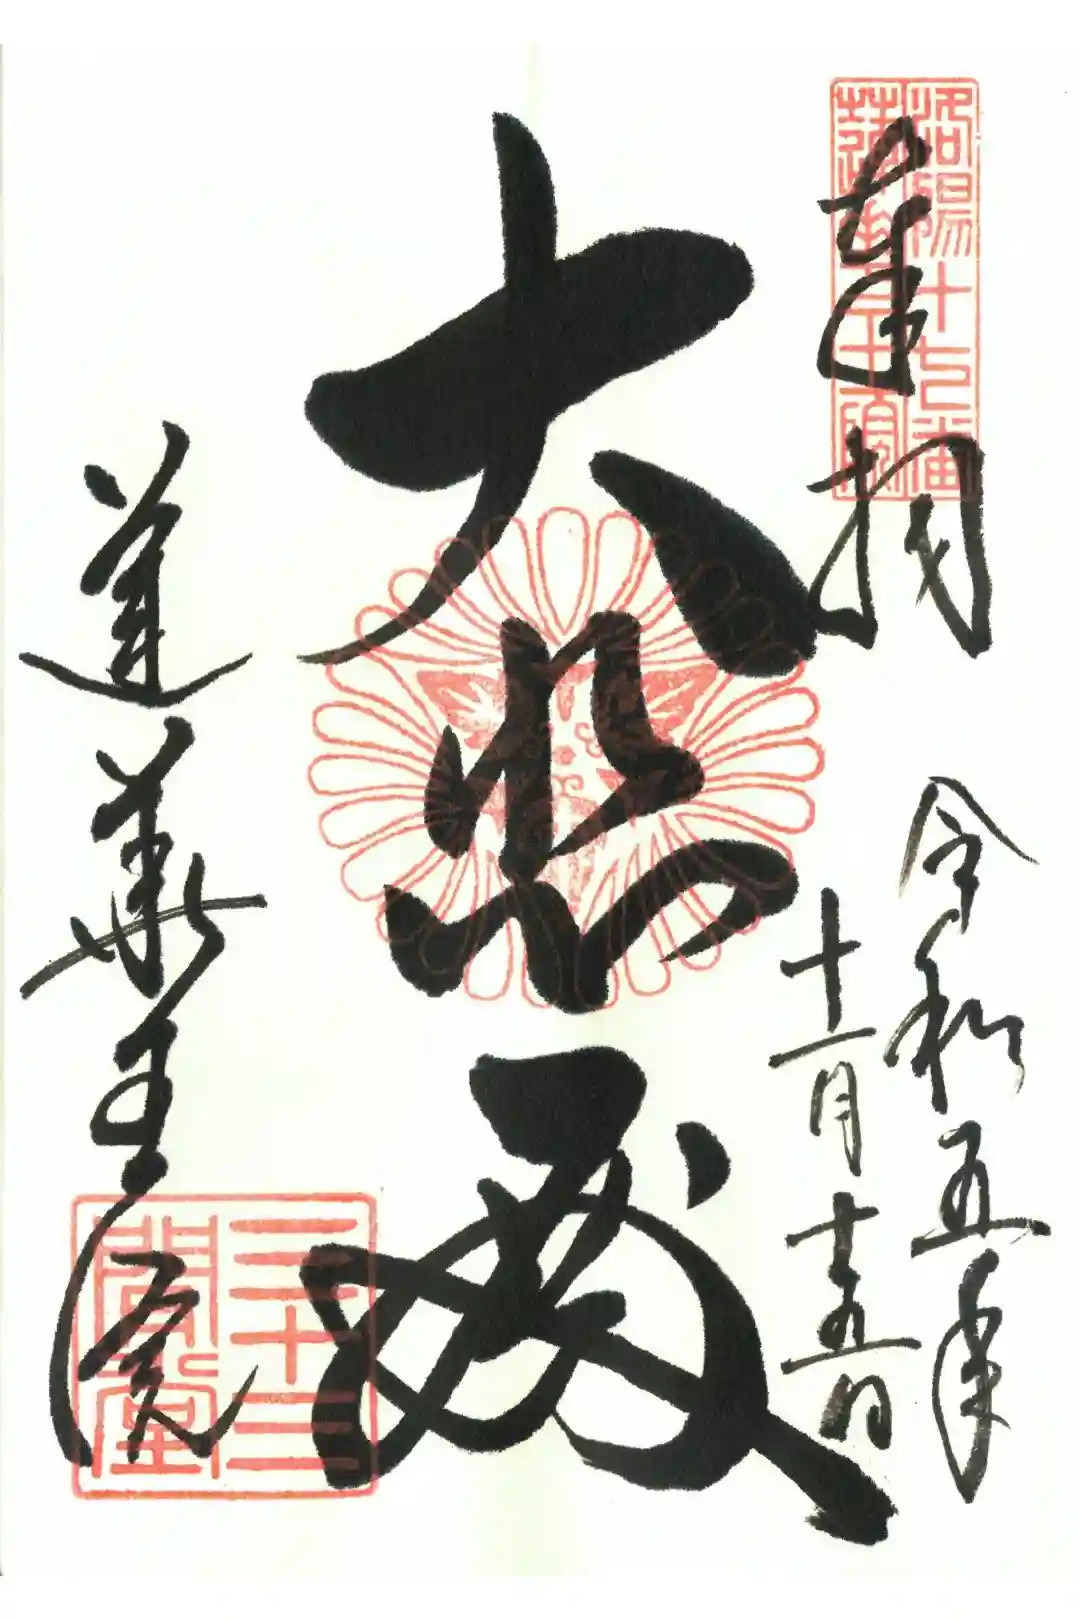 洛陽十七番
奉拝
令和五年
十一月十五日
大悲殿
蓮華王院
三十三
間堂